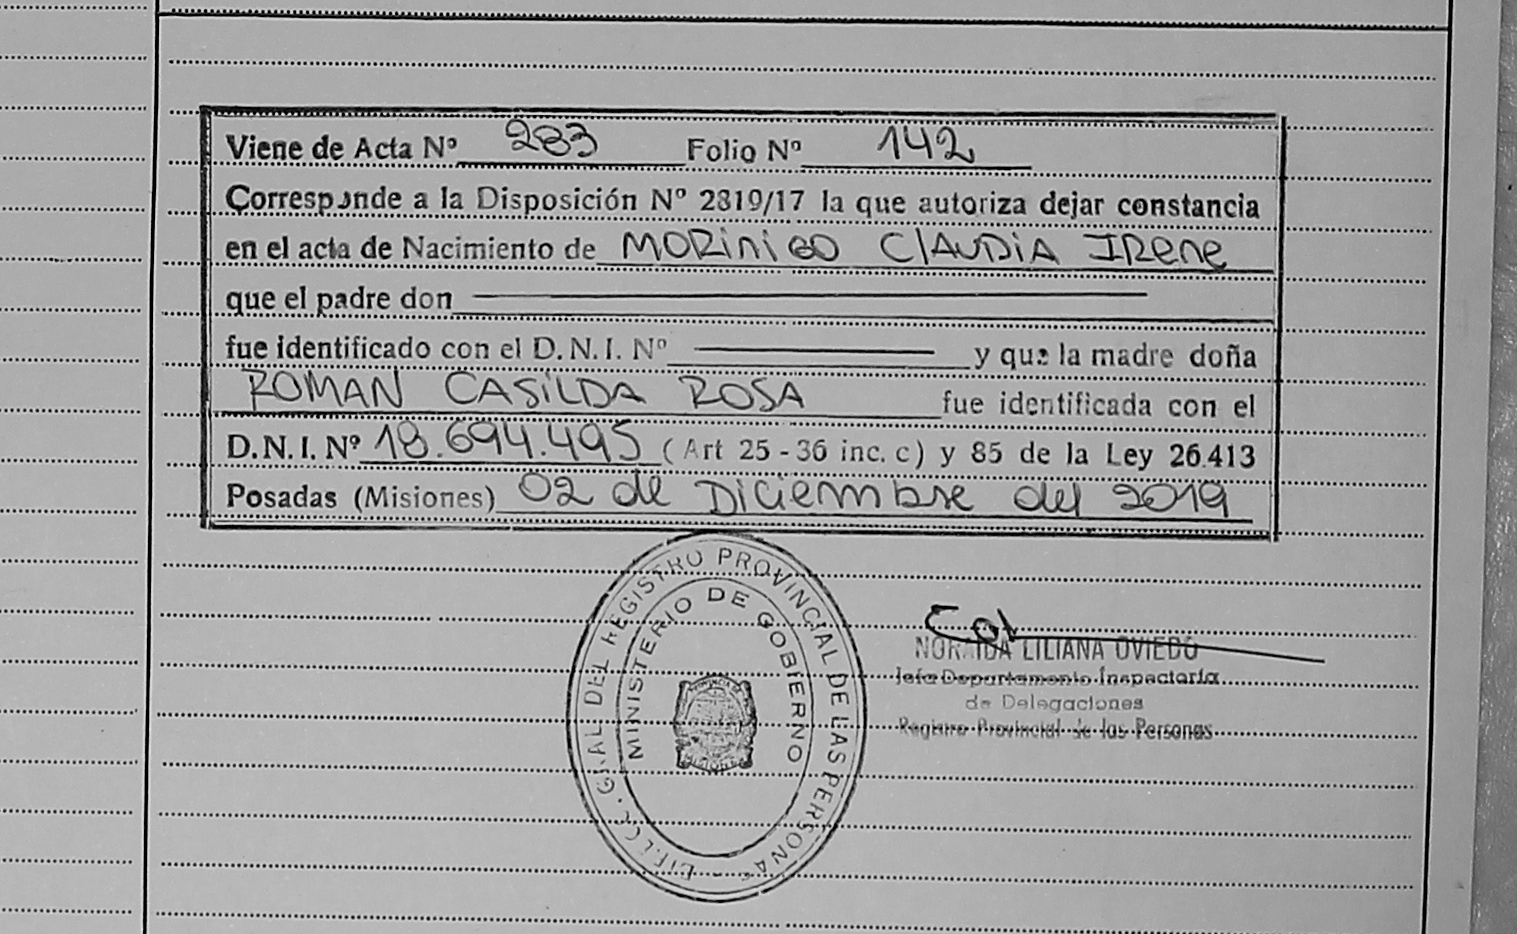 Viene de Acta Nº 283 Folio Nº 142
Corresponde a la Disposición Nº 2819/17 la que autoriza dejar constancia
en el acta de Nacimiento de MORiNiGO ClAUDiA IRene
que el padre don
fue identificado con el D.N.I. Nº y que la madre doña
ROMAN CASiLDA ROSA fue identificada con el
D.N.I. Nº 18.694.495 (Art 25 - 36 inc. c) y 85 de la Ley 26.413
Posadas (Misiones) 02 de Diciembre del 2019
GRAL DEL REGISTRO PROVINCIAL DE LAS PERSONAS
MINISTERIO DE GOBIERNO
MISIONES
NORAIDA LILIANA OVIEDO
Jefa Departamento Inspectoría
de Delegaciones
Registro Provincial de las Personas